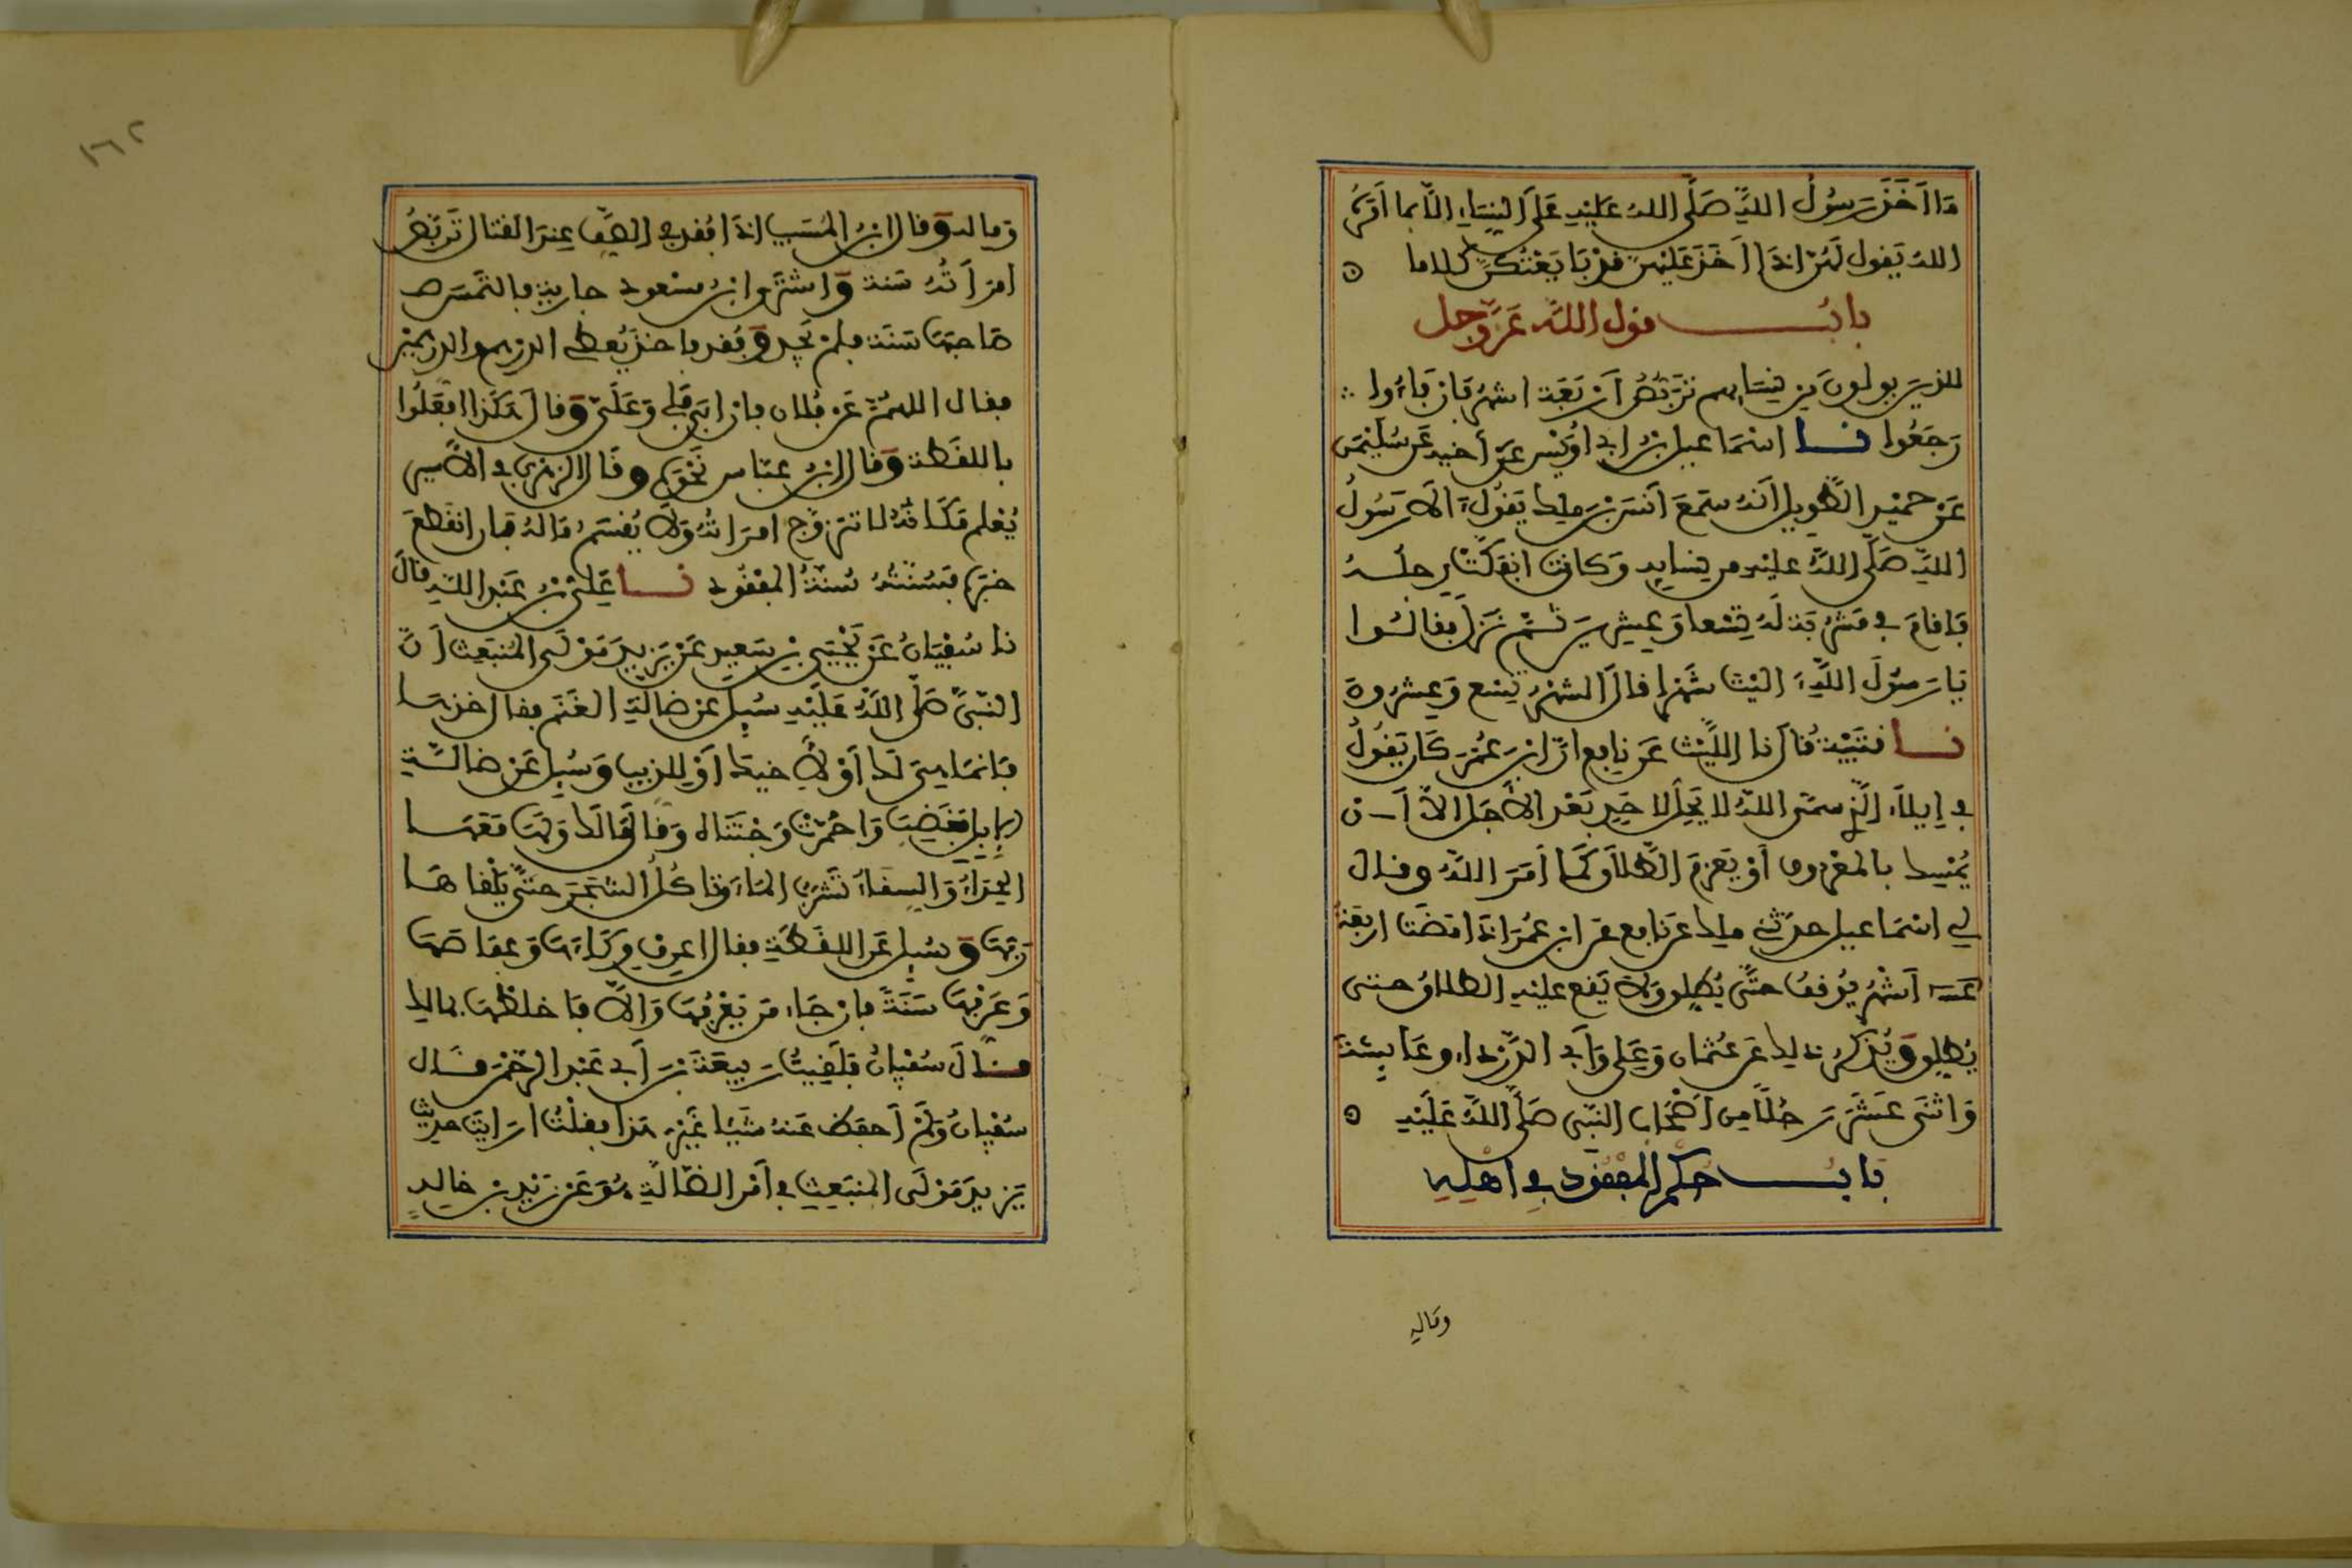 مَا أَخَذَ رَسُولُ اللَّهِ صَلَّى اللهُ عَلَيْهِ عَلَى النِّسَاءِ إلَّا بما أمَرَهُ
اللهُ يَقول لَهُنَّ إذَا أَخَذَ عَلَيْهِنَّ قَدْ بَايَعْتُكُنَّ كلاما ۞
بابُ قول اللَّه عَزَّوَجل
للذينَ يولون مِن نِسَايِهم تَرَبُّصُ أَرْبَعَة اشهُر فَإن فَاءُوا ∴
رَجَعُوا نا اسْمَاعيل بْنُ ابي أُوَيْس عَن أخيه عَن سُلَيْمٰن
عَنْ حميْدٍ الطَّوِيل أَنهُ سَمِعَ أَنَسَ بْنَ ملك يَقُولُ آلَى رَسُولُ
اللهِ صَلَّى اللهُ عليْه من نِسَايِهِ وَكانت انفَكَّتْ رِجلُهُ
فَأقامَ في مَشْرُبَة لَهُ تِسْعا وَعِشرِينَ ثُمَّ نَزَلَ فقالُوا
يَا رَسُولَ اللَّهِ آليْتَ شَهْرا قالَ الشهْرُ تِسْع وَعِشرُونَ
نا قتَيْبَةُ قالَ نا اللَّيْث عَن نافِع أنَّ ابنَ عُمَرَ كَانَ يَقُولُ
في إيلاءِ الَّذِي سمَّى اللهُ لا يَحِلُّ لأحَدٍ بَعْدَ الأجَلِ إلاَّ أَن
يُمْسِكَ بالمَعْرُوف أَوْ يَعزِمَ الطَّلَاقَ كَمَا أَمَرَ اللهُ وقال
لي اسْمَاعيل حدثني ملك عَن نافع عَن ابن عُمَرَ إذَا مَضَتْ اربَعَةُ
أَشْهُر يُوقَفُ حتَّى يُطَلِّق وَلاَ يَقع عليْهِ الطلاقُ حتى
يُطَلِّق وَيُذْكَرُ ذلك عَن عُثمان وَعَلي وَأبي الدَّرْدَاءِ وعَايِشَة
وَاثنَى عَشَرَ رَجُلاً مِن أَصْحَابِ النَّبي صَلَّى اللهُ عَلَيْهِ ۞
بَابُ حُكم المَفْقُودِ فِي أَهْلِهِ
وماله
وَمَاله وَقال ابنُ المُسَيب إذَا فُقد في الصَّف عِندَ القتال تَرَبَّصُ
امرَأتُهُ سَنة وَاشتَرى ابنُ مسْعود جاريةً فالتَمَس
صَاحِبَهَا سَنَة فلم يَجِد وَفُقد فأخذَ يُعطي الدرهم والدرهمَيْن
فقال اللهُمَّ عَن فُلان فإن أبَى فلي وَعَلَيَّ وَقال هَكَذا افعَلُوا
باللقَطة وَقال ابنُ عَبّاس نَحْوَهُ وقَال الزهري في الأسير
يُعْلم مَكَانُهُ لا تتزوَّج امرَاتُهُ وَلاَ يُقسَمُ مَالهُ فإن انقَطَعَ
خَبَرُهُ فَسُنَّتُهُ سُنَّةُ المَفقُود نا عَلِيُّ بْنُ عَبْد اللهِ قالَ
نا سُفْيَانُ عَن يَحْيَى بْنِ سَعيد عَن يَزِيد مَوْلَى المُنبَعِث أَنَّ
النَّبيَّ صَلَّى اللهُ عَلَيْهِ سُئِل عَن ضالةِ الغَنم فقال خذهَا
فَإنمَا هِيَ لك أَوْ لأخيكَ أوْ للذيب وَسُئِل عَن ضَالَّةِ
الإبِل فَغَضِبَ وَاحْمَرَّتْ وَجْنَتَاه وَقال مَا لَك وَلَهَا مَعَهَا
الحِذَاءُ وَالسِّقاءُ تَشرَبُ المَاءَ وَتاكُلُ الشجَرَ حَتَّى يَلْقاهَا
رَبُّهَا وَسُئِل عَن اللقَطَةِ فقال اعرِف وِكَاءَهَا وَعِفَاصَهَا
وَعَرِّفهَا سَنَةً فإن جَاءَ مَن يَعْرِفُهَا وَإلاَّ فَاخلطهَا بمالك
قالَ سُفْيانُ فلَقِيتُ رَبيعَةَ بْنَ أَبي عَبْد الرحْمٰن قَال
سُفْيانُ وَلَمْ أحفظ عَنهُ شَيْئا غَيْرَ هَذا فقلْتُ ارَايتَ حديث
يَزيد مَوْلَى المنبَعِث في أَمر الضَّالَّةِ هُوَ عَن زَيْد بن خالدٍ